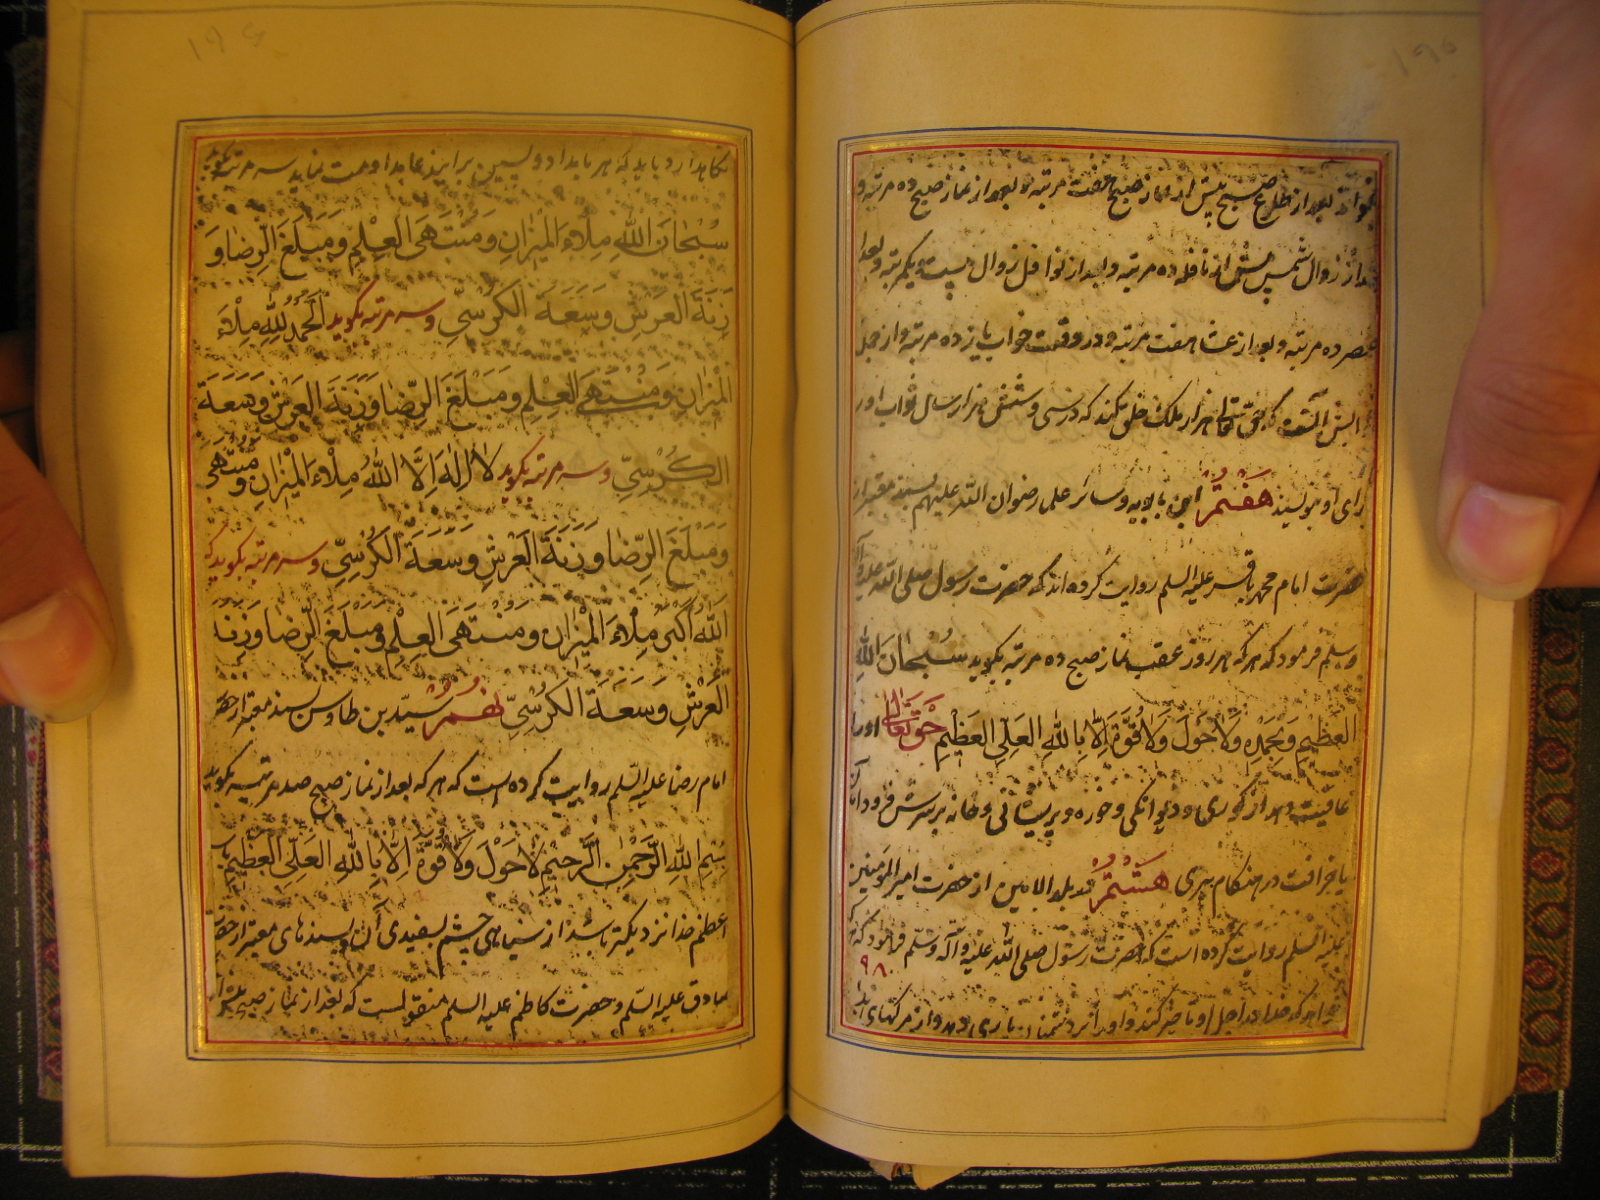 بخواند بعد از طلوع صبح پیش از نماز صبح هفت مرتبه و بعد از نماز صبح ده مرتبه و
بعد از زوال شمس پیش از نافله ده مرتبه و بعد از نوافل زوال بیست و یکمرتبه و بعد از
عصر ده مرتبه و بعد از عشا هفت مرتبه و در وقت خواب یازده مرتبه و از جمله
حق تعالی هزار ملک خلق میکند که درسی و شش هزار سال ثواب اورا
برای او بنویسند هَفْتُمْ ابن بابویه و سائر علما رضوان الله علیهم بسند معتبر از
حضرت امام محمد باقر علیه السلم روایت کرده اند که حضرت رسول صلی الله علیه و آله
و سلم فرمود که هر که هر روز عقب نماز صبح ده مرتبه بکوید سُبْحَانَ اللّٰهِ
العَظِیمِ وَبِحَمْدِهِ وَلَا حَوْلَ وَلَا قُوَّةَ اِلَّا بِاللّٰهِ العَلِیِّ العَظِیمِ حَق تَعَالٰی اورا
عافیت دهد از کوری و دیوانکی و خوره و پریشانی و خانه بر سرش فرود آمدن
یا خرافت در هنکام پیری هَشْتُمْ در بلد الامین از حضرت امیر المومنین
علیه السلم روایت کرده است که حضرت رسول صلی الله علیه و آله و سلم فرمود که هر که
۹۸
خواهد که خدا در اجل او تاخیر کند و اورا بر دشمنان یاری دهد و از مرکهای بد
نکاهدارد باید که هر بامداد و پسین بر این دعا مداومت نماید سه مرتبه بکوید
سُبْحَانَ اللّٰهِ مِلْاءَ الْمِیْزَانِ وَمُنْتَهَی الْعِلْمِ وَمَبْلَغَ الرِّضَا وَ
زِنَةَ الْعَرْشِ وَسَعَةَ الْکُرْسِیِّ و سه مرتبه بکوید اَلْحَمْدُ لِلّٰهِ مِلْاءَ
الْمِیْزَانِ وَمُنْتَهَی الْعِلْمِ وَمَبْلَغَ الرِّضَا وَزِنَةَ الْعَرْشِ وَسَعَةَ
الْکُرْسِیِّ و سه مرتبه بکوید لَا اِلٰهَ اِلَّا اللّٰهُ مِلْاءَ الْمِیْزَانِ وَمُنْتَهَی
وَمَبْلَغَ الرِّضَا وَزِنَةَ الْعَرْشِ وَسَعَةَ الْکُرْسِیِّ و سه مرتبه بکوید که
اَللّٰهُ اَکْبَرُ مِلْاءَ الْمِیْزَانِ وَمُنْتَهَی الْعِلْمِ وَمَبْلَغَ الرِّضَا وَزِنَةَ
الْعَرْشِ وَسَعَةَ الْکُرْسِیِّ نُهُمْ سیّد بن طاوس بسند معتبر از حضرت
امام رضا علیه السّلم روایت کرده است که هر که بعد از نماز صبح صد مرتبه بکوید
بِسْمِ اللّٰهِ الرَّحْمٰنِ الرَّحِیْمِ لَا حَوْلَ وَلَا قُوَّةَ اِلَّا بِاللّٰهِ الْعَلِیِّ الْعَظِیْمِ
اعظم خدا نزدیکتر باشد از سیاهی چشم بسفیدی آن و بسندهای معتبر از حضرت
صادق علیه السّلم و حضرت کاظم علیه السلم منقولست که بعد از نماز صبح